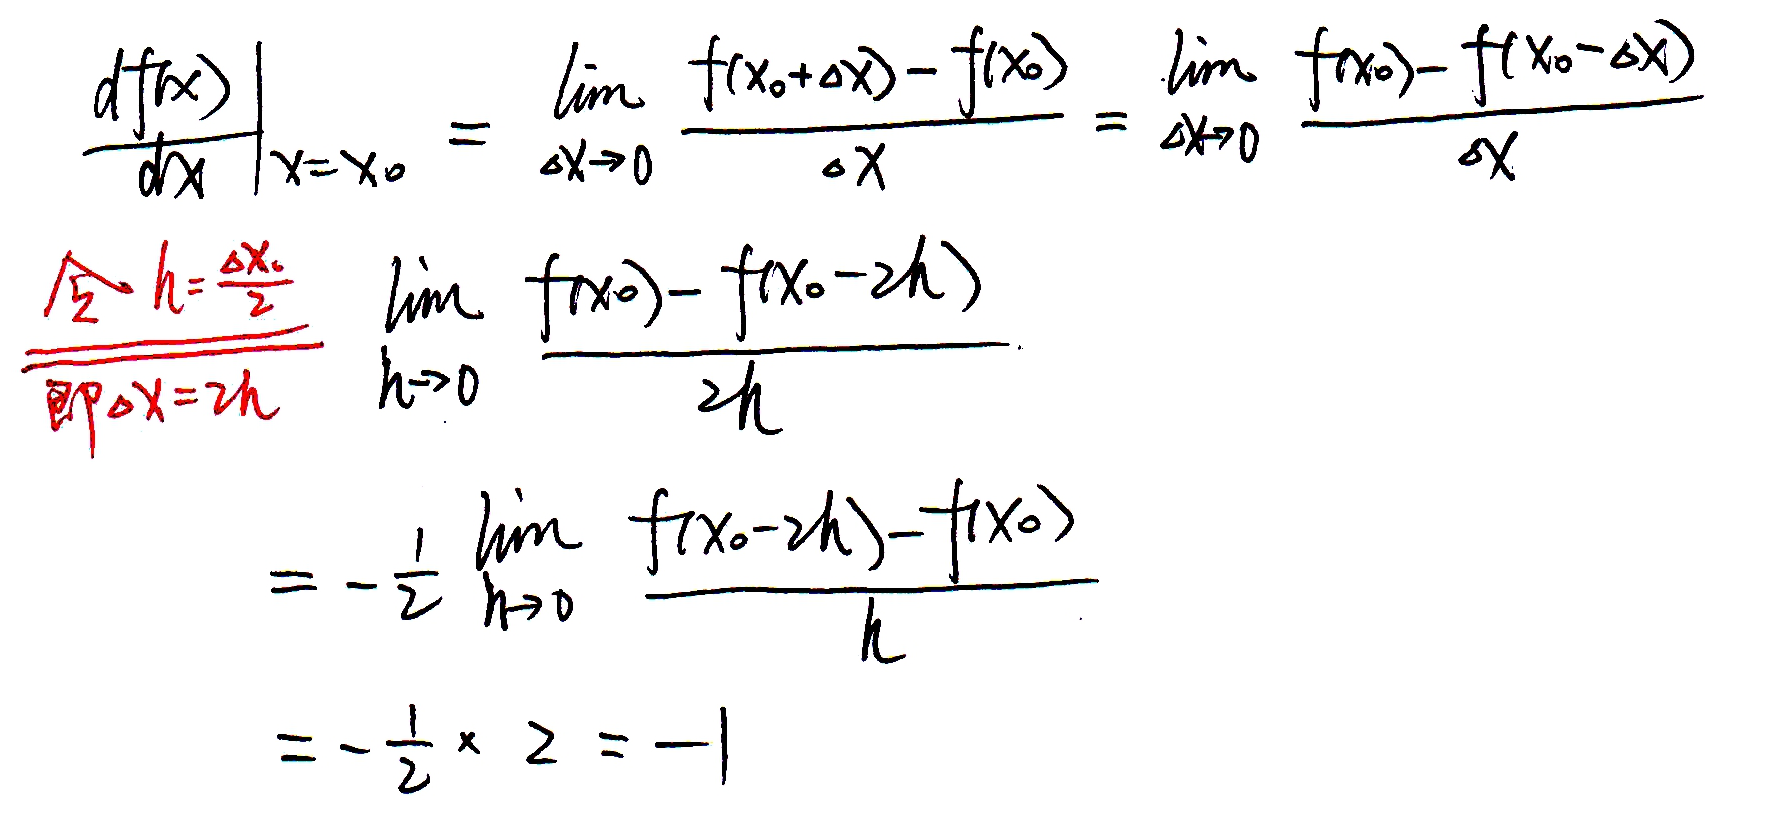 df(x)/dx |x=x₀ = lim Δx→0 (f(x₀+Δx)-f(x₀))/Δx = lim Δx→0 (f(x₀)-f(x₀-Δx))/Δx
令 h=Δx₀/2 即Δx=2h lim h→0 (f(x₀)-f(x₀-2h))/2h
= -1/2 lim h→0 (f(x₀-2h)-f(x₀))/h
= -1/2 × 2 = -1